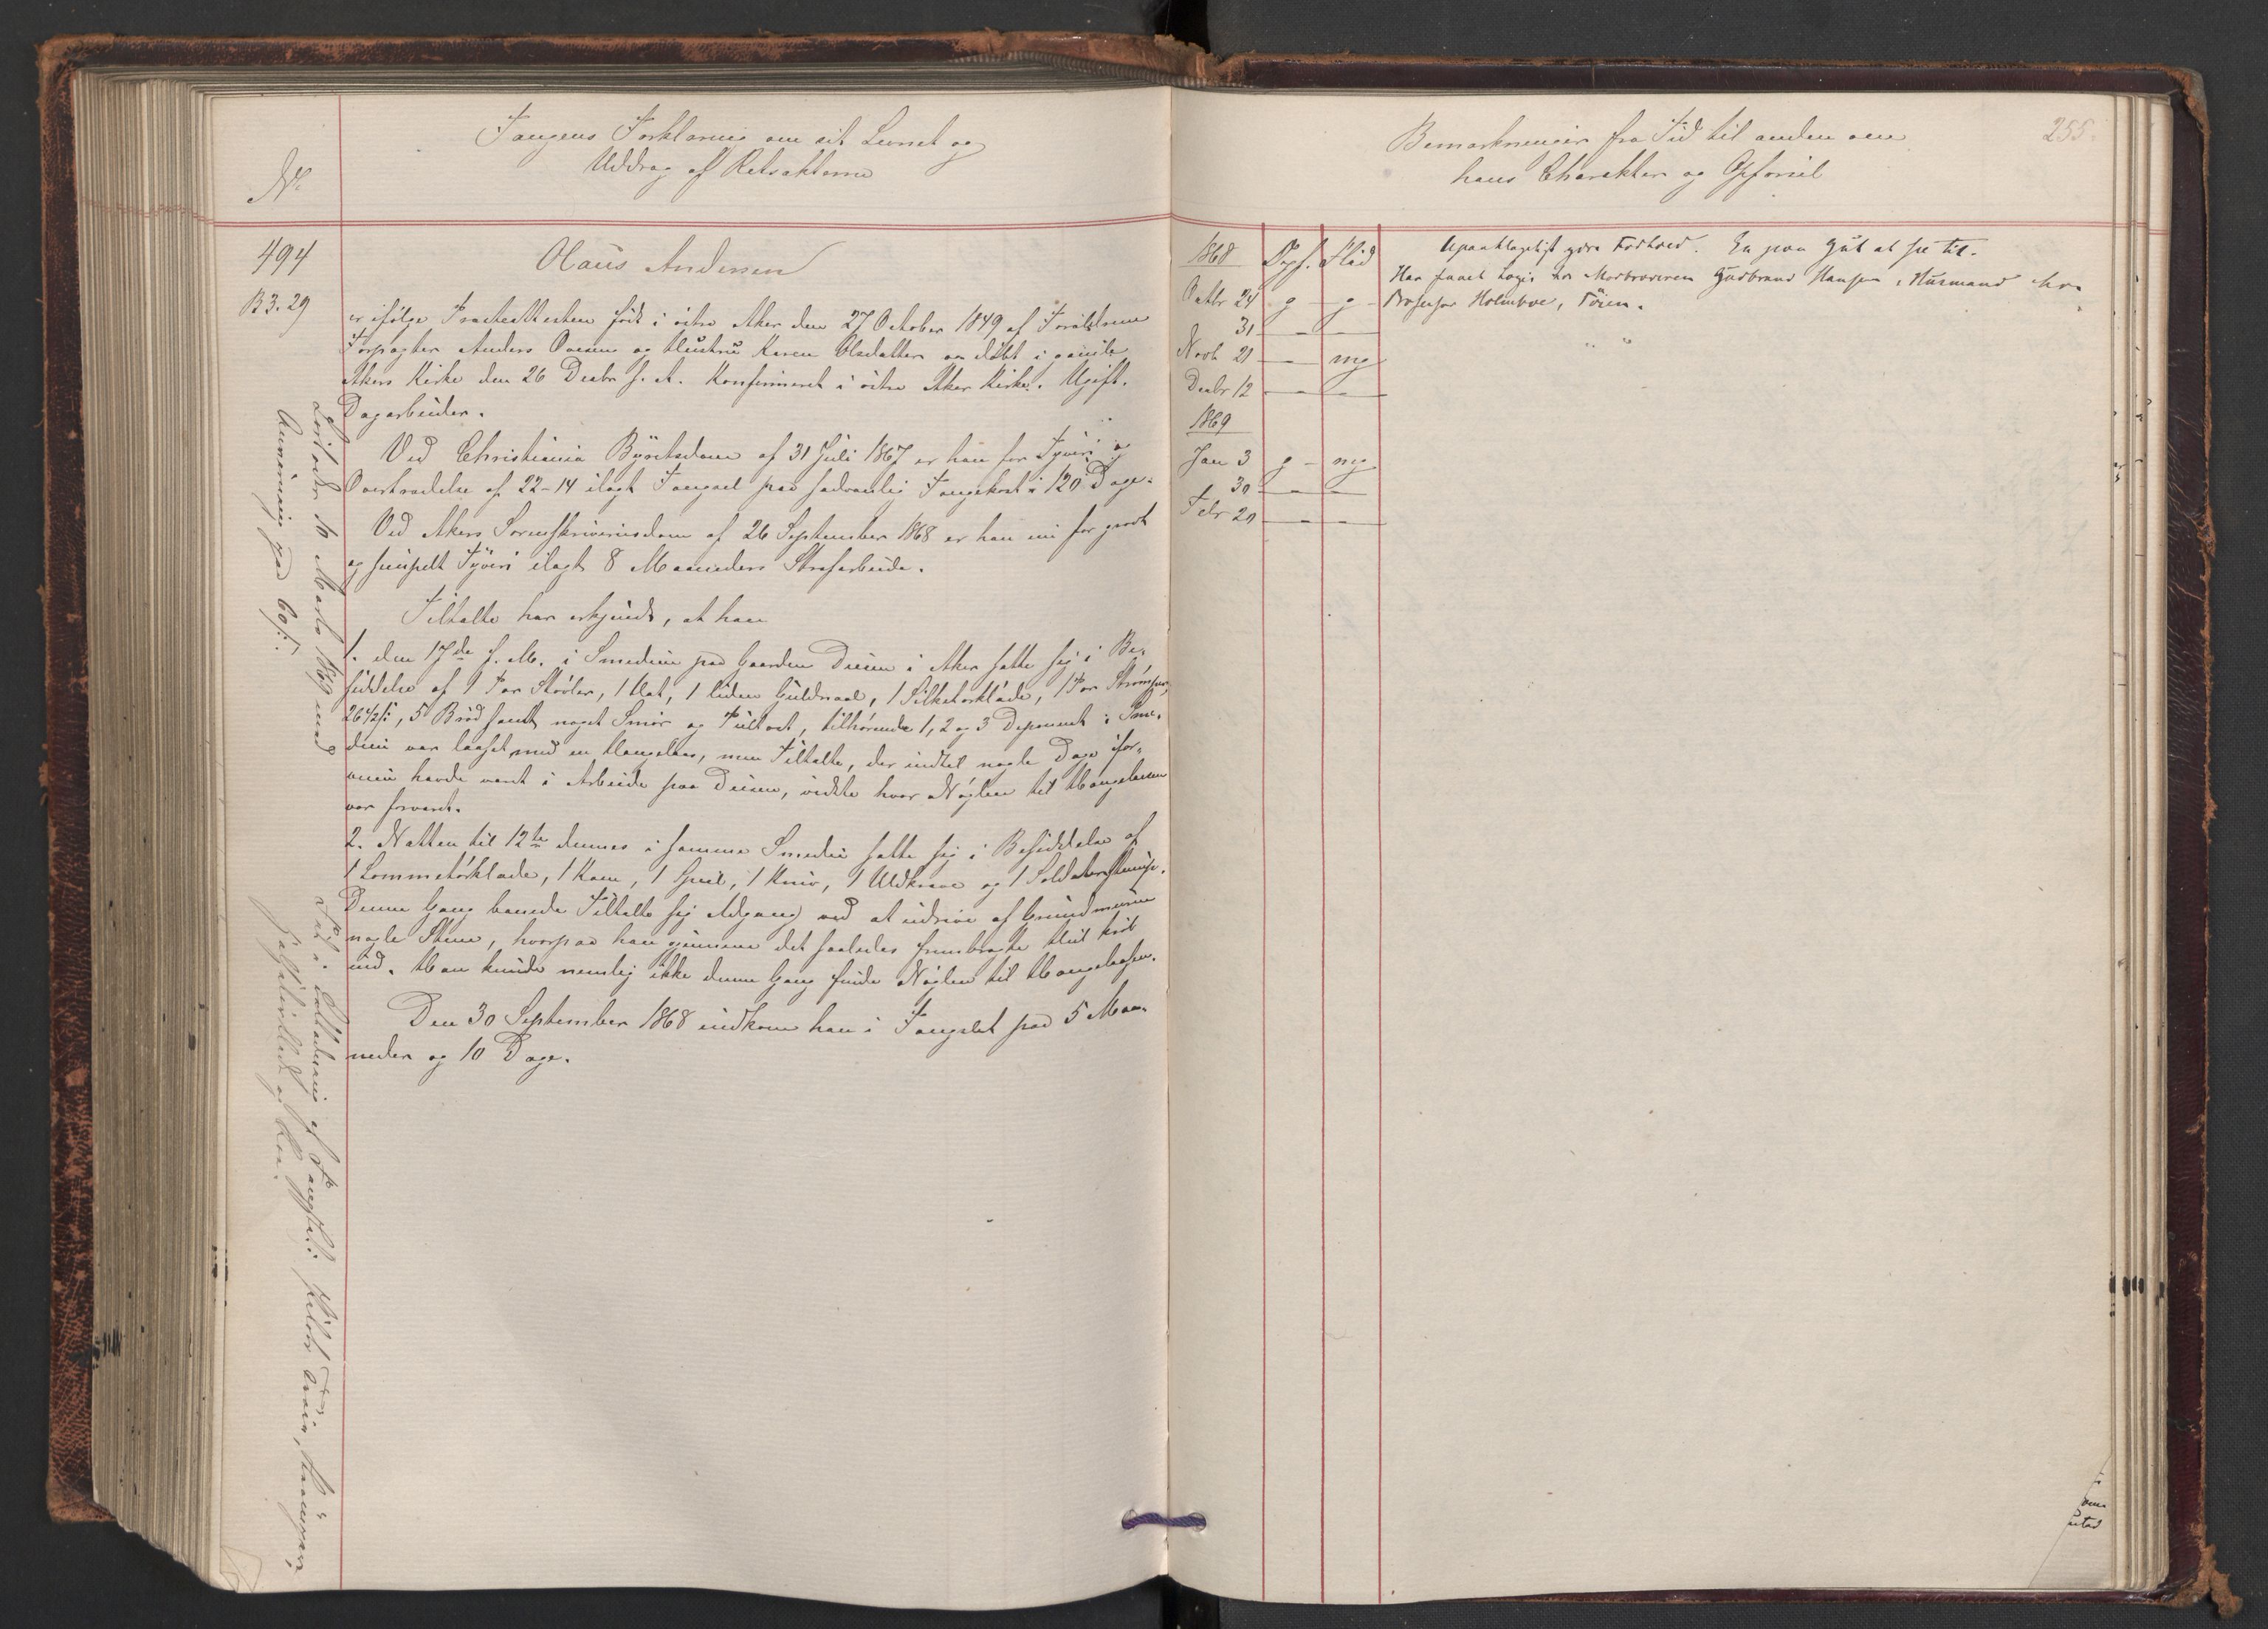 Fangens Forklaring om sit Levnet og
Uddrag af Retsakterne
No
494
B 3. 29
Olaus Andersen
er ifølge Præsteattesten født i østre Aker den 27 October 1849 af Forældrene
Forpagter Anders Ovesen og Hustru Karen Olsdatter og døbt i gamle
Akers Kirke den 26 Decbr s. A. Konfirmeret i østre Aker Kirke. Ugift.
Dagarbeider.
Ved Christiania Byretsdom af 31 Juli 1867 er han for Tyveri og
Overtrædelse af 22-14 ilagt Fængsel paa sædvanlig Fangekost i 120 Dage.
Ved Akers Sorenskriveriesdom af 26 September 1868 er han nu for grovt
og simpelt Tyveri ilagt 8 Maaneders Strafarbeide.
Tiltalte har erkjendt, at han
1. den 17de f. M. i Smedien paa Gaarden Disen i Aker satte sig i Be-
siddelse af 1 Par Støvler, 1 Hat, 1 liden Guldnaal, 1 Silketørklæde, 1 Par Strømper,
26 1/2 s, 5 Brød samt noget Smør og Pultost, tilhørende 1, 2 og 3 Deponent. Sme-
dien var laaset med en Hængelaas, men Tiltalte, der indtil nogle Dage ifor-
veien havde været i Arbeide paa Disen, vidste hvor Nøglen til Hængelaasen
var forvaret.
2. Natten til 12te dennes i samme Smedie satte sig i Besiddelse af
1 Lommetørklæde, 1 Kam, 1 Speil, 1 Kniv, 1 Uldkrave og 1 Soldaterstrøie.
Denne Gang banede Tiltalte sig Adgang ved at udrive af Grundmuren
nogle Stene, hvorpaa han gjennem det saaledes frembragte Hul krøb
ind. Han kunde nemlig ikke denne Gang finde Nøglen til Hængelaasen.
Den 30 September 1868 indkom han i Fængslet paa 5 Maa-
neder og 10 Dage.
Løsladt 10 Marts 1869 med
Anvisning paa 60 s.
Fik i Dottering af Fængslet:
og
Bemærkninger fra Tid til anden om
hans Charakter og Opførsel
255.
1868 Opf. Flid
Octbr 24 g - g -
31 - -
Novb 21 - mg
Decbr 12 - -
1869
Jan 3 g - mg
30 - -
Febr 20 - -
Upaaklageligt ydre Forhold. En pæn Gut at se til.
Har faaet Logis hos Morbroderen Gudbrand Hansen, Husmand hos
Professor Holmboe, Tøien.